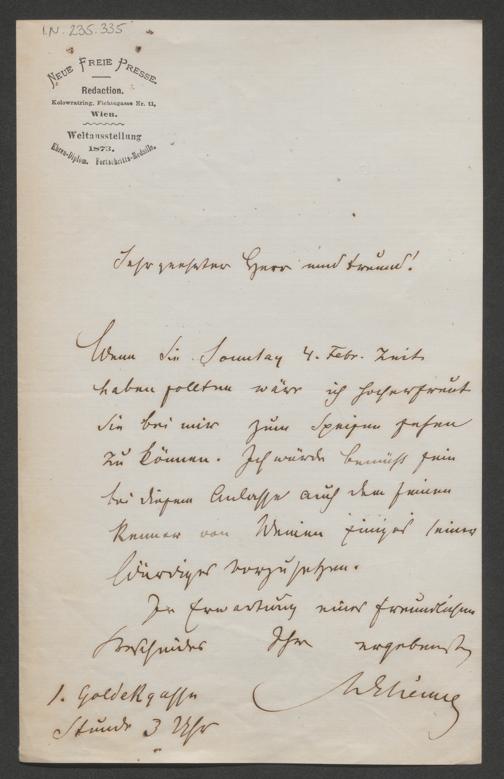 I.N. 235.335
NEUE FREIE PRESSE.
Redaction.
Kolowratring, Fichtegasse Nr. 11,
Wien.
Weltausstellung
1873.
Ehren-Diplom. Fortschritts-Medaille.
Sehr geehrter Herr und Freund!
Wenn Sie Sonntag 4. Febr. Zeit
haben sollten wäre ich hocherfreut
Sie bei mir zum Speisen sehen
zu können. Ich würde bemüht sein
bei diesem Anlasse auch dem feinen
Kenner von Weinen einiges seiner
Würdiges vorzusetzen.
In Erwartung eines freundlichen
Bescheides Ihr ergebenster
1. Goldekgasse
Stunde 3 Uhr